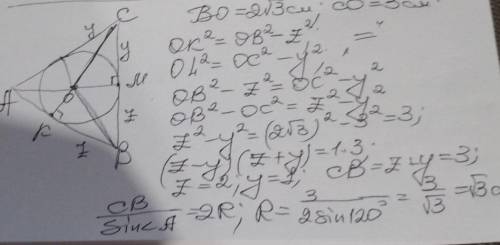 BO=2√3см; CO=3см
OK²=OB²-z²
OL²=OC²-y²
OB²-z²=OC²-y²
OB²-OC²=z²-y²
z²-y²=(2√3)²-3²=3;
(z-y)(z+y)=1·3
z=2, y=1; CB=z+y=3;
CB/SinA=2R; R=3/2sin120°=3/√3=√3c
y
C
y
M
O
A
K
z
z
B